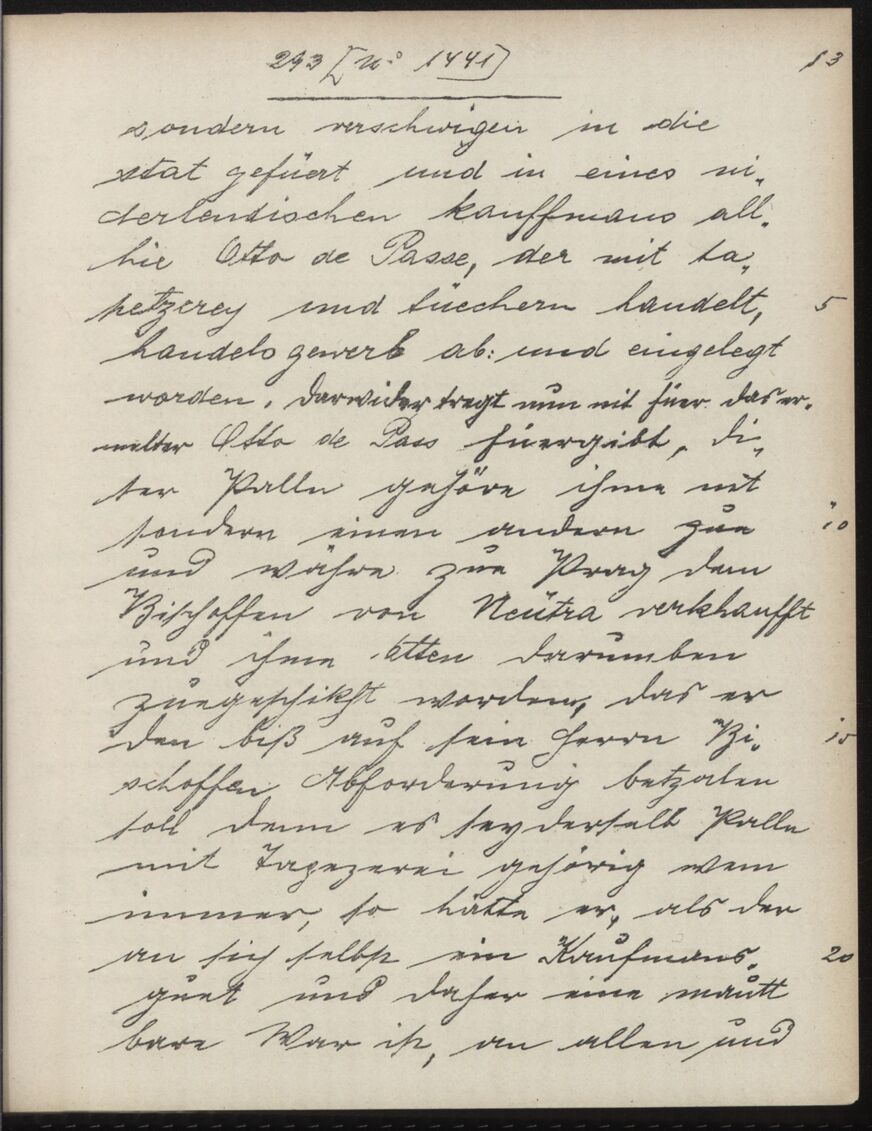 293 [No 1441] 13
sondern verschwigen in die
stat gefüert und in eines ni„
derlendischen kauffmans all„
hie Otto de Passe, der mit ta„
petzerey und tüechern handelt, 5
handelsgewerb ab: und eingelegt
worden. Darwider tregt nun nit für das er„
melter Otto de Pass fuergibt, di„
ser Palln gehöre ihme nit
sondern einen andern zue 10
und währe zue Prag dem
Bischoffen von Neütra verkhaufft
und ihme Otten darumben
zuegeschikht worden, das er
den biß auf sein Herrn Bi„ 15
schoffen Abforderung betzalen
soll denn es sey derselb Palln
mit Tapezerei gehörig wem
immer, so hätte er, als der
an sich selbst ein Kaufmans„ 20
guet und daher eine mautt
bare War ist, an allen und